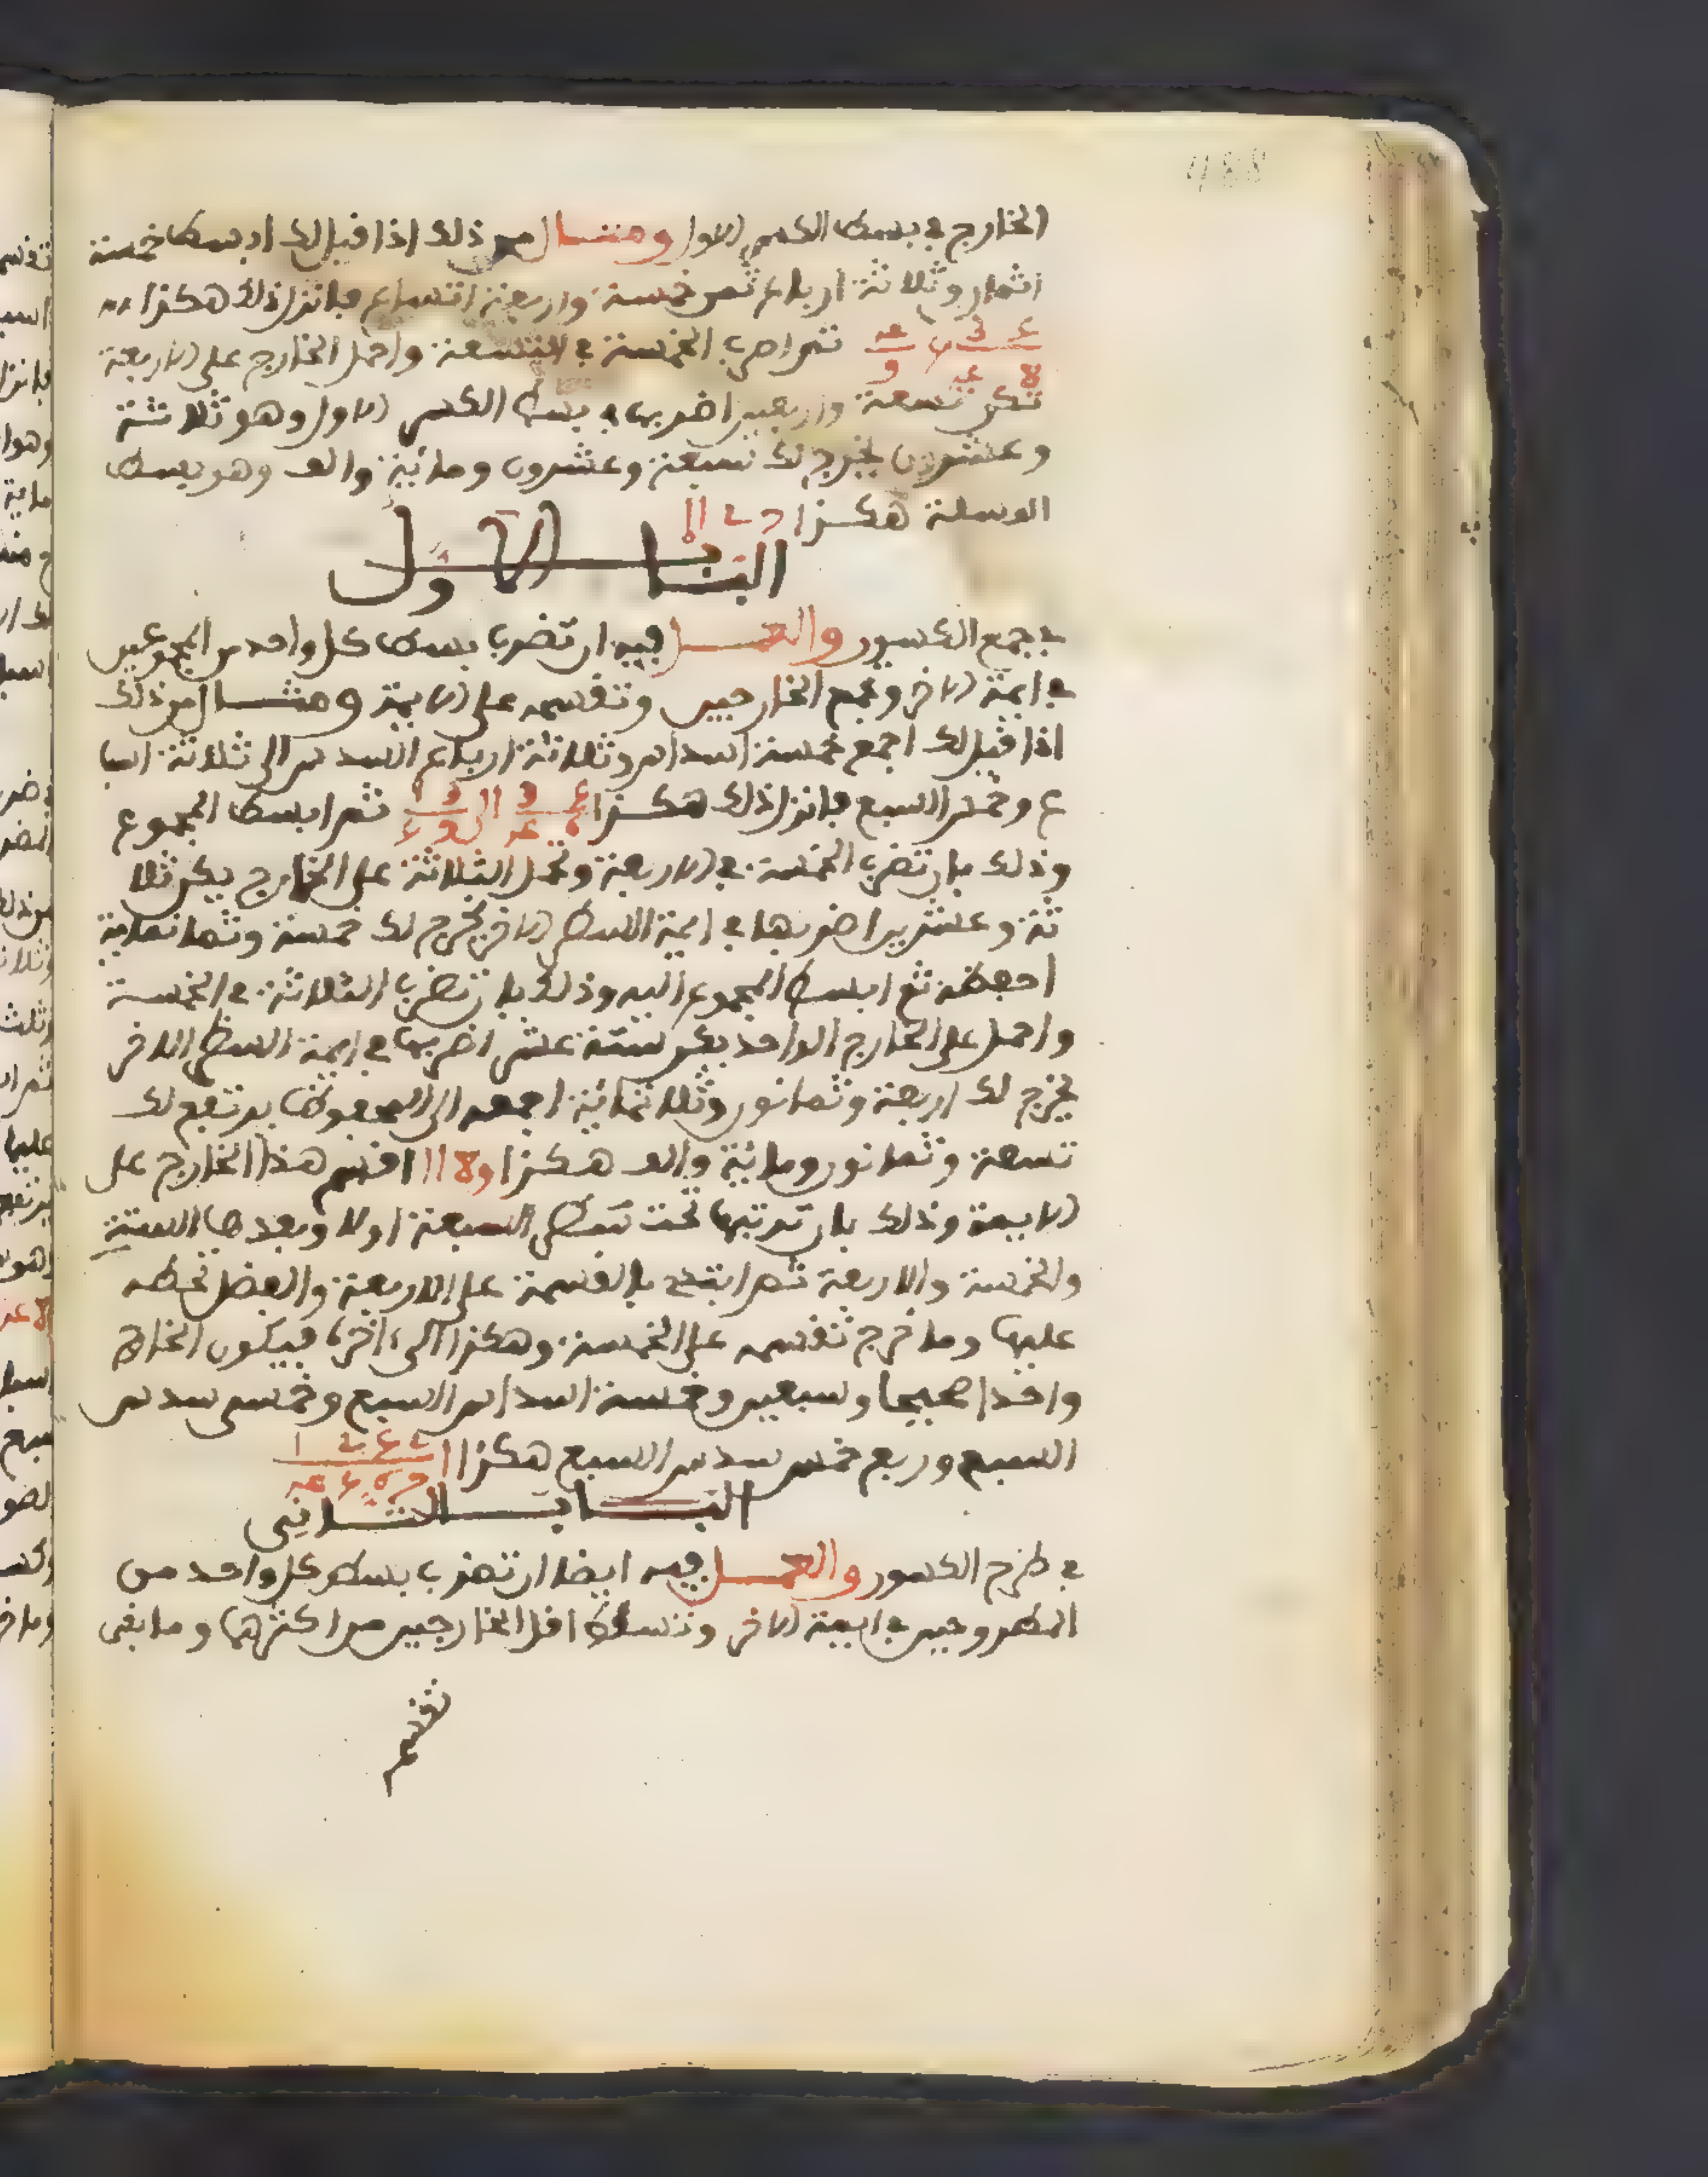 الخارج في بسط الكسر الاول ومثال من ذلك اذا قيل لك ابسط خمسة
اثمان وثلاثة ارباع ثمن خمسة واربعة اتساع فانزل ذلك هكذا
ثم اضرب الخمسة في التسعة واحمل الخارج على الاربعة
تكن تسعة واربعين اضربها في بسط الكسر الاول وهو ثلاثة
وعشرون يخرج لك سبعة وعشرون ومائة والف وهو بسط
المسئلة هكذا
الباب الاول
في جمع الكسور والعمل فيه ان تضرب بسط كل واحد من المجموعين
في ايمة الاخر وتجمع الخارجين وتقسمه على الايمة ومثال من ذلك
اذا قيل لك اجمع خمسة اسداس وثلاثة ارباع السدس الى ثلاثة اسبا
ع وخمس السبع فانزل ذلك هكذا ثم ابسط المجموع
وذلك بان تضرب الخمسة في الاربعة وتحمل الثلاثة على الخارج يكن ثلا
ثة وعشرين اضربها في ايمة البسط الاخر يخرج لك خمسة وثمانماية
احفظه ثم ابسط المجموع اليه وذلك بان تضرب الثلاثة في الخمسة
واحمل على الخارج الواحد يكن ستة عشر اضربها في ايمة البسط الاخر
يخرج لك اربعة وثمانون وثلاثمائة اجمعه الى المحفوظ يرتفع لك
تسعة وثمانون ومائة والف هكذا اقسم هذا الخارج على
الايمة وذلك بان ترتبها تحت السبعة اولا وبعدها الستة
والخمسة والاربعة ثم ابتدئ بالقسمة على الاربعة والفضل تحطه
عليها وما خرج تقسمه على الخمسة وهكذا الى اخرها فيكون الخارج
واحدا صحيحا وسبعين وخمسة اسداس السبع وخمسي سدس
السبع وربع خمس سدس السبع هكذا
الباب الثاني
في طرح الكسور والعمل فيه ايضا ان تضرب بسط كل واحد من
المطروحين في ايمة الاخر وتسقط اقل الخارجين من اكثرهما وما بقي
تقسم